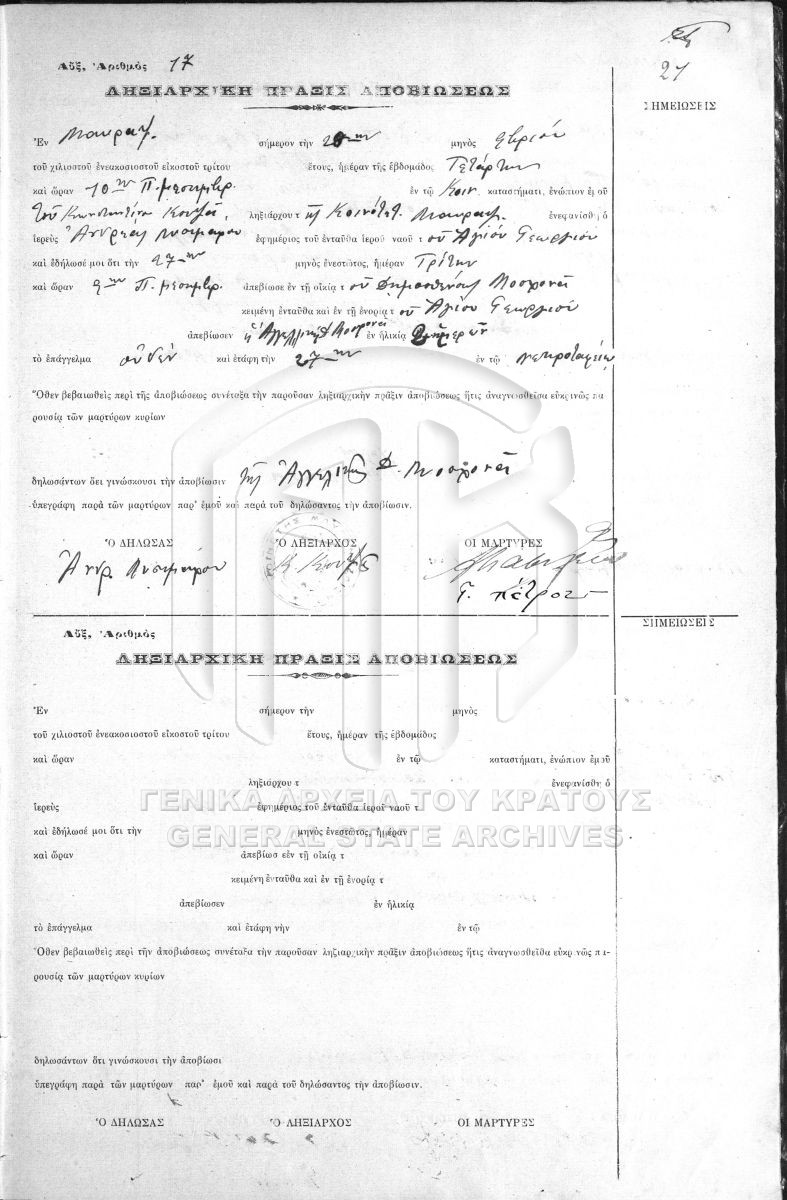 Αὔξ. Ἀριθμὸς 17
21
ΛΗΞΙΑΡΧΙΚΗ ΠΡΑΞΙΣ ΑΠΟΒΙΩΣΕΩΣ
ΣΗΜΕΙΩΣΕΙΣ
Ἐν σήμερον τὴν μηνὸς
τοῦ χιλιοστοῦ ἐνεακοσιοστοῦ εἰκοστοῦ τρίτου ἔτους, ἡμέραν τῆς ἑβδομάδος Τετάρτην
καὶ ὥραν 10ην Π. μεσημβρ. ἐν τῷ Κοιν. καταστήματι, ἐνώπιον ἐμοῦ
τοῦ Κωνσταντίνου ληξιάρχου τῆς Κοινότητ. ἐνεφανίσθη ὁ
ἱερεὺς Ἀνδρέας ἐφημέριος τοῦ ἐνταῦθα ἱεροῦ ναοῦ τοῦ Ἁγίου Γεωργίου
καὶ ἐδήλωσέ μοι ὅτι τὴν 27ην μηνὸς ἐνεστῶτος, ἡμέραν Τρίτην
καὶ ὥραν 2αν Π. μεσημβρ. ἀπεβίωσε ἐν τῇ οἰκίᾳ τοῦ Δημοσθένους Μοσχονᾶ
κειμένῃ ἐνταῦθα καὶ ἐν τῇ ἐνορίᾳ τοῦ Ἁγίου Γεωργίου
ἀπεβίωσεν ἡ Ἀγγελικὴ Δ Μοσχονᾶ ἐν ἡλικίᾳ ἡμερῶν
τὸ ἐπάγγελμα οὐδὲν καὶ ἐτάφη τὴν 27ην ἐν τῷ νεκροταφείῳ
Ὅθεν βεβαιωθεὶς περὶ τῆς ἀποβιώσεως συνέταξα τὴν παροῦσαν ληξιαρχικὴν πρᾶξιν ἀποβιώσεως ἥτις ἀναγνωσθεῖσα εὐκρινῶς πα
ρουσίᾳ τῶν μαρτύρων κυρίων
δηλωσάντων ὅει γινώσκουσι τὴν ἀποβίωσιν τῆς Ἀγγελικῆς Δ. Μοσχονᾶ
ὑπεγράφη παρὰ τῶν μαρτύρων παρ' ἐμοῦ καὶ παρὰ τοῦ δηλώσαντος τὴν ἀποβίωσιν.
Ὁ ΔΗΛΩΣΑΣ Ὁ ΛΗΞΙΑΡΧΟΣ ΟΙ ΜΑΡΤΥΡΕΣ
Ἀνδρ.
Γ. Πέτρου
Αὔξ. Ἀριθμὸς
ΣΗΜΕΙΩΣΕΙΣ
ΛΗΞΙΑΡΧΙΚΗ ΠΡΑΞΙΣ ΑΠΟΒΙΩΣΕΩΣ
Ἐν σήμερον τὴν μηνὸς
τοῦ χιλιοστοῦ ἐνεακοσιοστοῦ εἰκοστοῦ τρίτου ἔτους, ἡμέραν τῆς ἑβδομάδος
καὶ ὥραν ἐν τῷ καταστήματι, ἐνώπιον ἐμοῦ
ληξιάρχου τ ἐνεφανίσθη ὁ
ΓΕΝΙΚΑ ΑΡΧΕΙΑ ΤΟΥ ΚΡΑΤΟΥΣ
ἱερεὺς ἐφημέριος τοῦ ἐνταῦθα ἱεροῦ ναοῦ τ
GENERAL STATE ARCHIVES
καὶ ἐδήλωσέ μοι ὅτι τὴν μηνὸς ἐνεστῶτος, ἡμέραν
καὶ ὥραν ἀπεβίωσ εἐν τῇ οἰκίᾳ τ
κειμένῃ ἐνταῦθα καὶ ἐν τῇ ἐνορίᾳ τ
ἀπεβίωσεν ἐν ἡλικίᾳ
τὸ ἐπάγγελμα καὶ ἐτάφη νὴν ἐν τῷ
Ὅθεν βεβαιωθεὶς περὶ τὴν ἀποβιώσεως συνέταξα τὴν παροῦσαν ληξιαρχικὴν πρᾶξιν ἀποβιώσεως ἥτις ἀναγνωσθεῖθα εὐκρινῶς πα-
ρουσίᾳ τῶν μαρτύρων κυρίων
δηλωσάντων ὅτι γινώσκουσι τὴν ἀποβίωσι
ὑπεγράφη παρὰ τῶν μαρτύρων παρ' ἐμοῦ καὶ παρὰ τοῦ δηλώσαντος τὴν ἀποβίωσιν.
Ὁ ΔΗΛΩΣΑΣ Ὁ ΛΗΞΙΑΡΧΟΣ ΟΙ ΜΑΡΤΥΡΕΣ